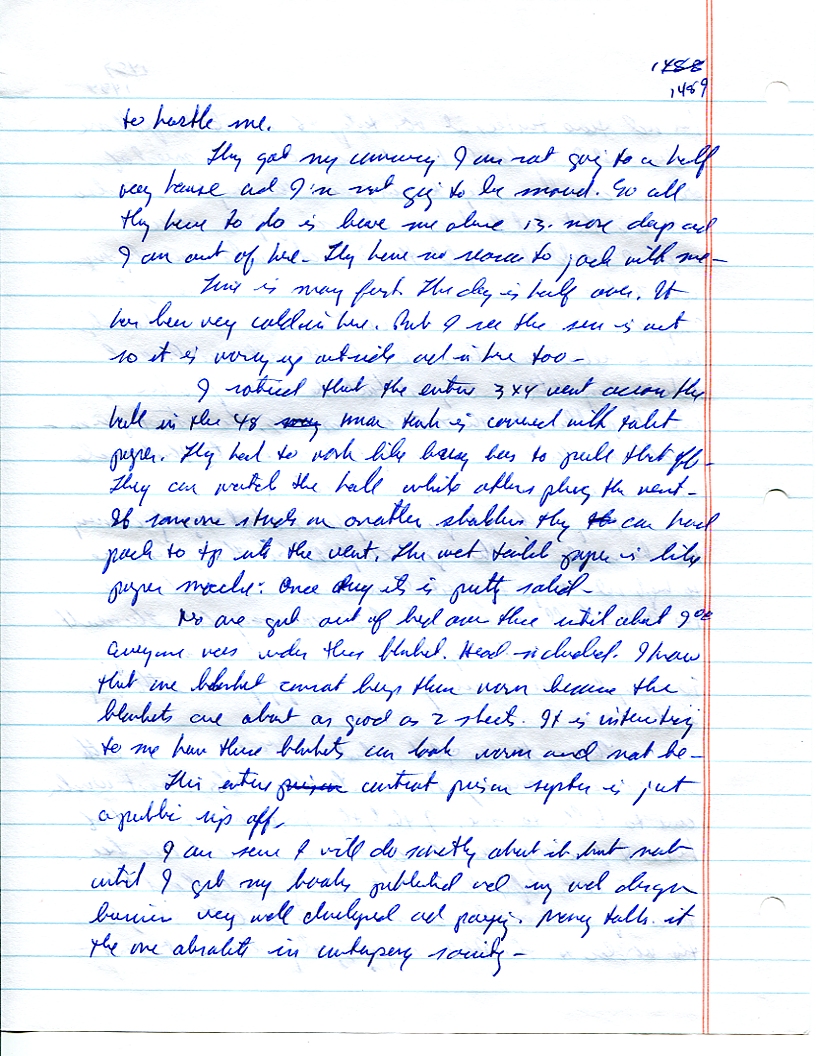 1488
1489
to hustle me.
They got my I am not going to a half
way house and I'm not going to be moved. So all
they have to do is leave me alone 13 more days and
I am out of here. They have no reason to jack with me –
This is may first. The day is half over. It
has been very cold in here. But I see the sun is out
so it is warming up outside and in here too –
I noticed that the entire 3 x 4 vent across the
hall in the 48 man tank is covered with toilet
paper. They had to work like busy bees to pull that off –
They can watch the hall while others plug the vent –
If someone stands on another shoulders they can hand
pack to top its the vent. The wet toilet paper is like
paper mache: Once dry its is pretty solid –
No one gets out of bed over there until about 9 00
everyone was under their blanket. Head included. I know
that one blanket cannot keep them warm because the
blankets are about as good as 2 sheets. It is interesting
to me how these blankets can look warm and not be –
This entire prison contract prison system is just
a public rip off.
I am sure I will do something about it but not
until I get my books published and my design
business very well developed and paying. Money talks. it
the one absolute in contempory society –